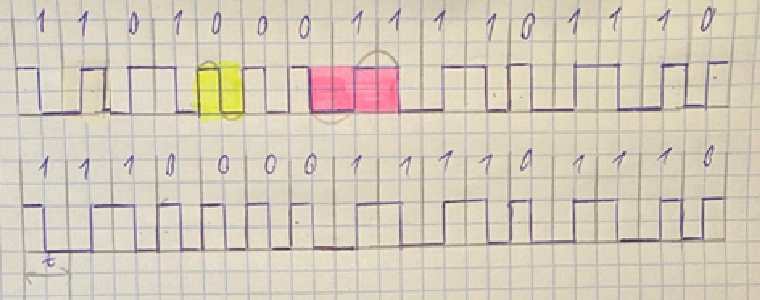 1 1 0 1 0 0 0 1 1 1 1 0 1 1 1 0
1 1 1 0 0 0 0 1 1 1 1 0 1 1 1 0
t